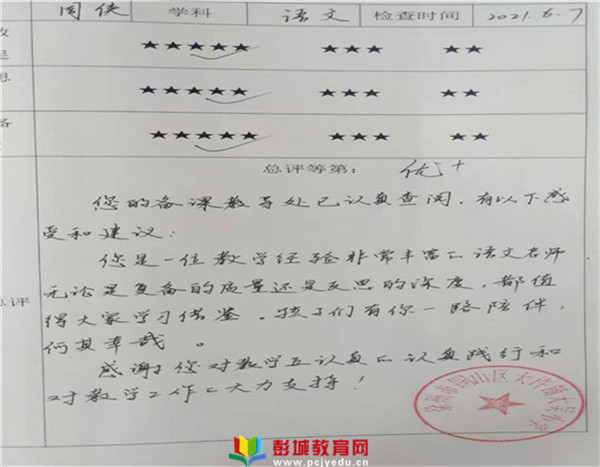 周侠 学科 语文 检查时间 2021.6.7
★★★★★ ★★★ ★★
思
★★★★★ ★★★ ★★
★★★★★ ★★★ ★★
总评等第： 优+
您的备课教导处已认真查阅，有以下感
受和建议：
总评
您是一位教学经验非常丰富的语文老师
无论是复备的质量还是反思的深度，都值
得大家学习借鉴。孩子们有你一路陪伴，
何其幸哉。
感谢您对教学五认真的认真践行和
对教学工作的大力支持！
彭城教育网
www.pcjyedu.cn